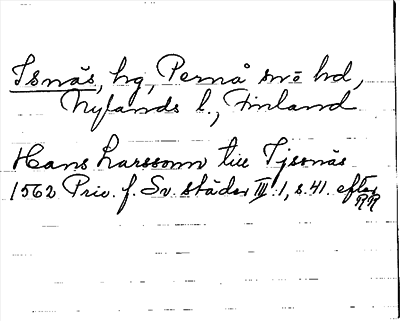 Isnäs, hg, Pernå sn o hd,
Nylands l., Finland
Hans Larssonn till Tjsonäs
1562 Priv. f. Sv. städer III:1, s. 41. efter
RR